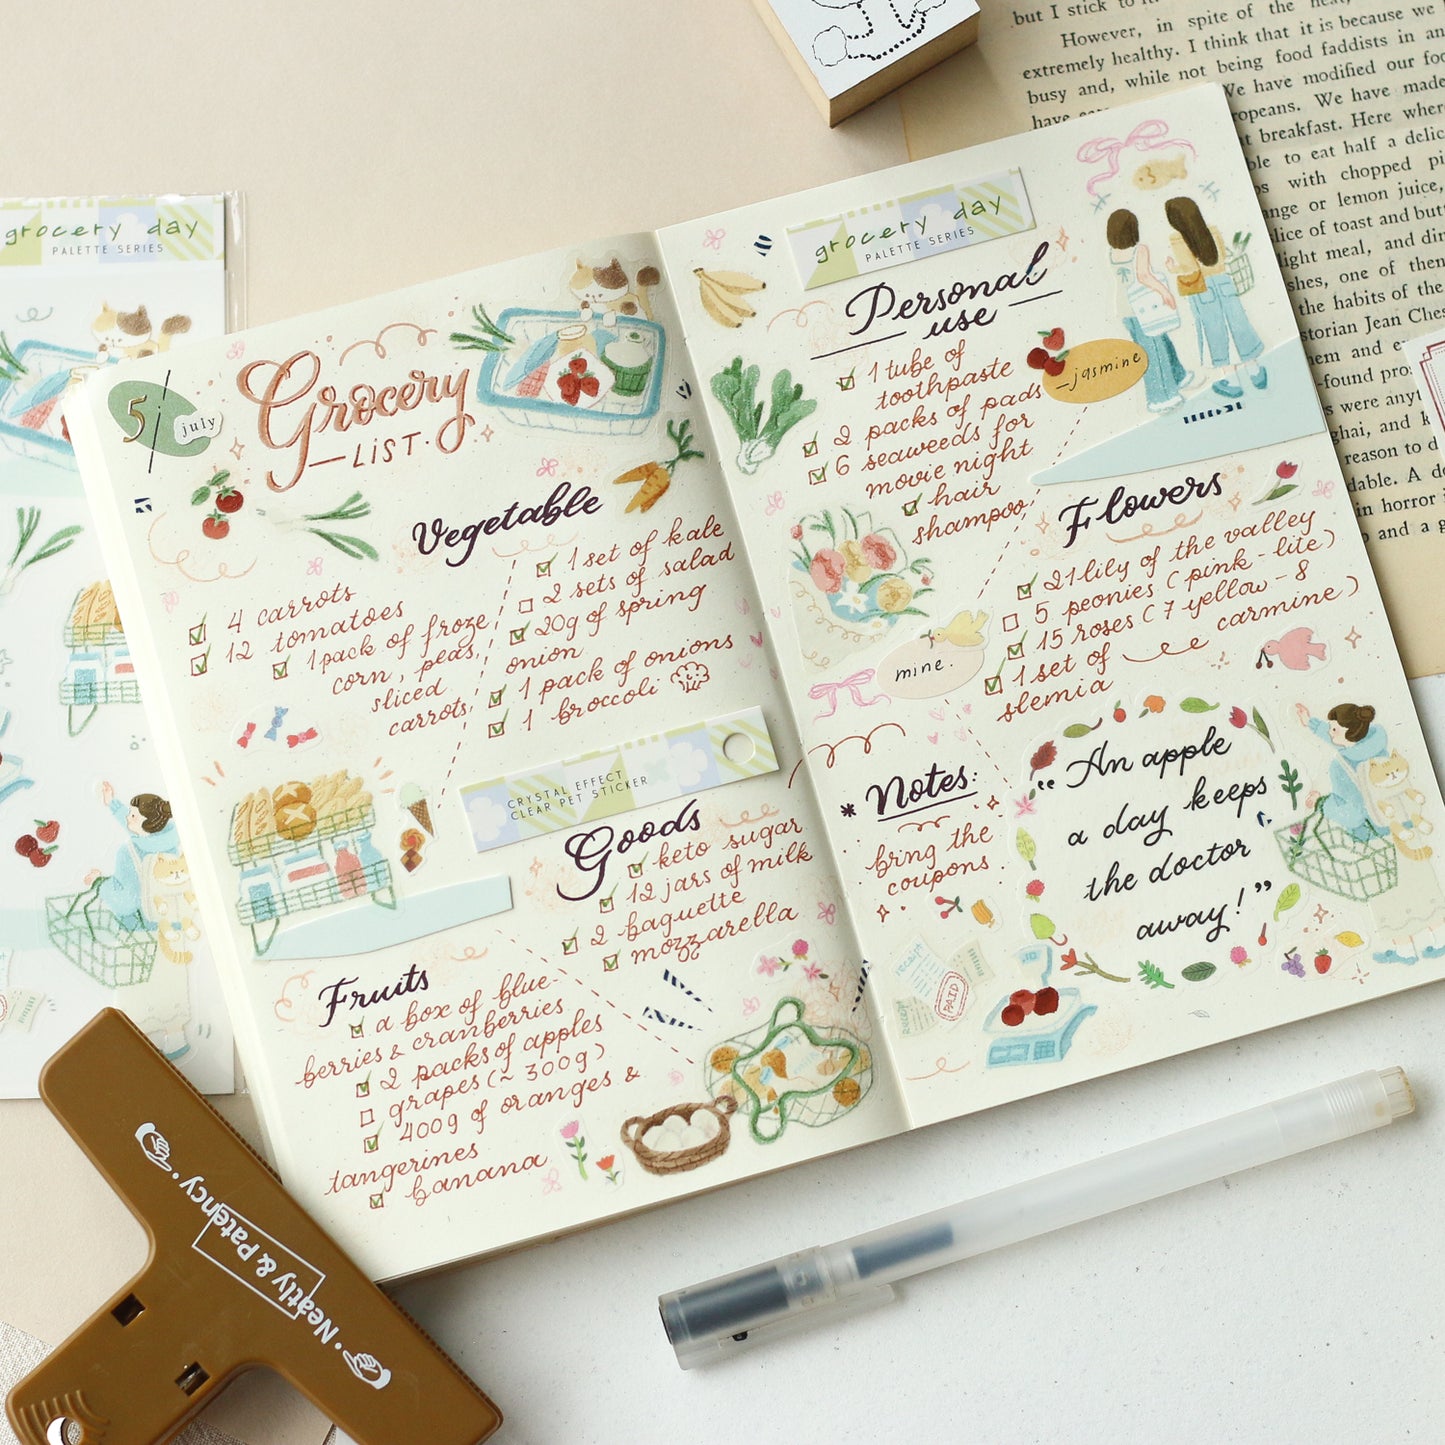 grocery day
PALETTE SERIES
5 july
Grocery
LIST.
Vegetable
4 carrots
12 tomatoes
1 pack of froze
corn, peas,
sliced
carrots
1 set of kale
2 sets of salad
20g of spring
onion
1 pack of onions
1 broccoli
CRYSTAL EFFECT
CLEAR PET STICKER
Goods
keto sugar
12 jars of milk
2 baguette
mozzarella
Fruits
a box of blue-
berries & cranberries
2 packs of apples
grapes (~300g)
400g of oranges &
tangerines
banana
grocery day
PALETTE SERIES
Personal
use
1 tube of
toothpaste
2 packs of pads
6 seaweeds for
movie night
hair
shampoo
jasmine
mine.
Flowers
21 lily of the valley
5 peonies (pink-lite)
15 roses (7 yellow-8
carmine)
1 set of
slemia
* Notes:
bring the
coupons
"An apple
a day keeps
the doctor
away!"
receipt
PAID
Receipt
Neatly & Patency
but I stick to
However, in spite of the heat,
extremely healthy. I think that it is because we
busy and, while not being food faddists in an
We have modified our foo
ropeans. We have made
breakfast. Here wher
ble to eat half a delic
with chopped
ange or lemon juice,
lice of toast and butt
light meal, and din
shes, one of them
the habits of the
storian Jean Ches
hem and
-found pro
were anyt
ghai, and k
reason to d
dable. A d
in horror
and a g